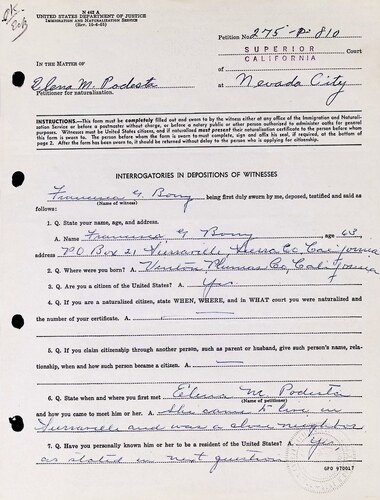 OK.
N 462 A
UNITED STATES DEPARTMENT OF JUSTICE
IMMIGRATION AND NATURALIZATION SERVICE
Petition No. 275-P-810
SUPERIOR Court
of CALIFORNIA
at Nevada City
IN THE MATTER OF
Elena M. Podesta
Petitioner for naturalization.
INSTRUCTIONS.—This form must be completely filled out and sworn to by the witness either at any office of the Immigration and Naturali-
zation Service or before a postmaster without charge, or before a notary public or other person authorized to administer oaths for general
purposes. Witnesses must be United States citizens, and if naturalized must present their naturalization certificate to the person before whom
this form is sworn to. The person before whom the form is sworn to must complete, sign and affix his seal, if required, at the bottom of
page 2. After the form has been sworn to, it should be returned without delay to the person who is applying for citizenship.
INTERROGATORIES IN DEPOSITIONS OF WITNESSES
Francesca G. Bony being first duly sworn by me, deposed, testified and said as
(Name of witness)
follows:
1. Q. State your name, age, and address.
A. Name Francesca G Bony, age 63,
address PO Box 21 Sierraville, Sierra Co, California
2. Q. Where were you born? A. Vinton Plumas Co, California
3. Q. Are you a citizen of the United States? A. Yes
4. Q. If you are a naturalized citizen, state WHEN, WHERE, and IN WHAT court you were naturalized and
the number of your certificate. A.
5. Q. If you claim citizenship through another person, such as parent or husband, give such person's name, rela-
tionship, when and how such person became a citizen. A.
6. Q. State when and where you first met Elena M. Podesta
(Name of petitioner)
and how you came to meet him or her. A. she came to live in
Sierraville and was a close neighbor
7. Q. Have you personally known him or her to be a resident of the United States? A. Yes
as stated in next question
GPO 970017